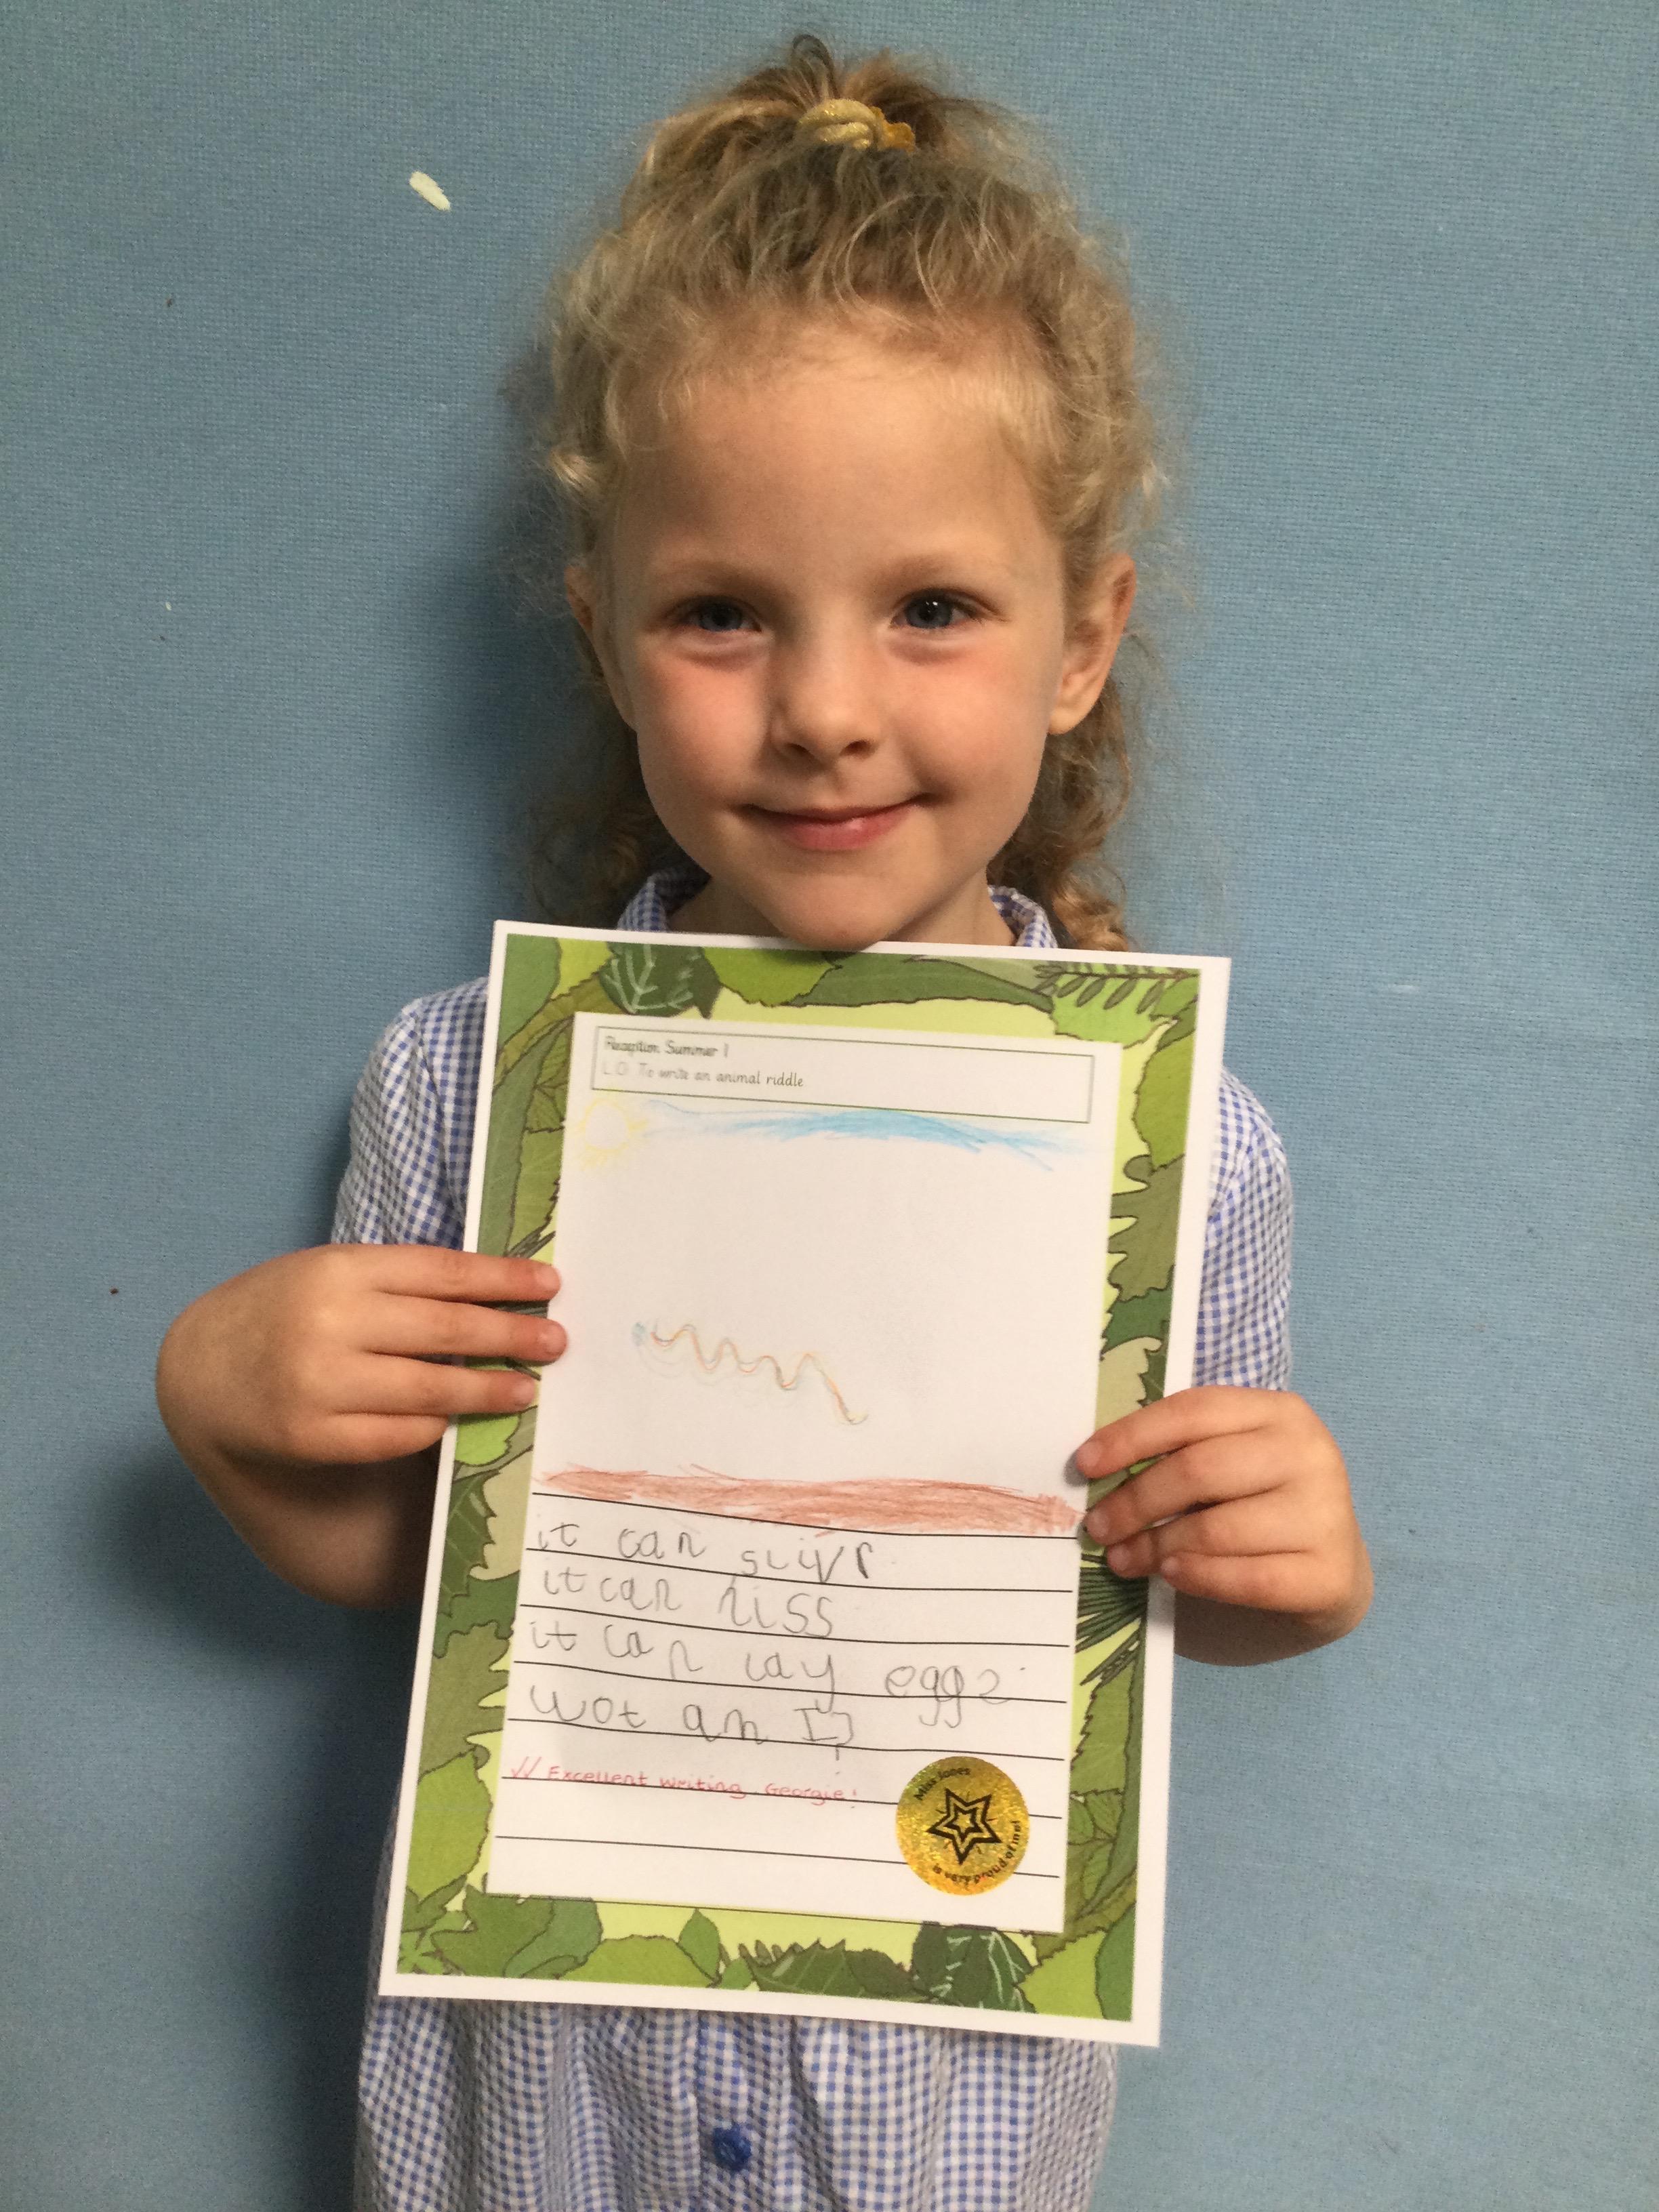 Reception Summer 1
L.O. To write an animal riddle
it can slivr
it can hiss
it can lay eggs
wot am I?
Excellent writing Georgie!
Miss Jones
is very proud of me!